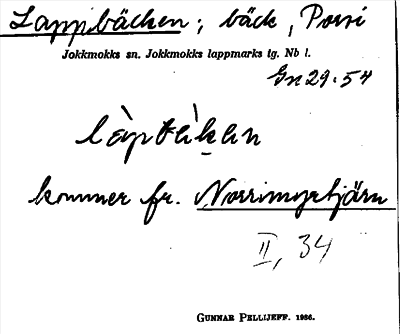 Lappbäcken; bäck, Porsi
Jokkmokks sn. Jokkmokks lappmarks tg. Nb l.
Gn 29.54
kommer fr. Norrimyrtjärn
II, 34
GUNNAR PELLIJEFF. 1986.